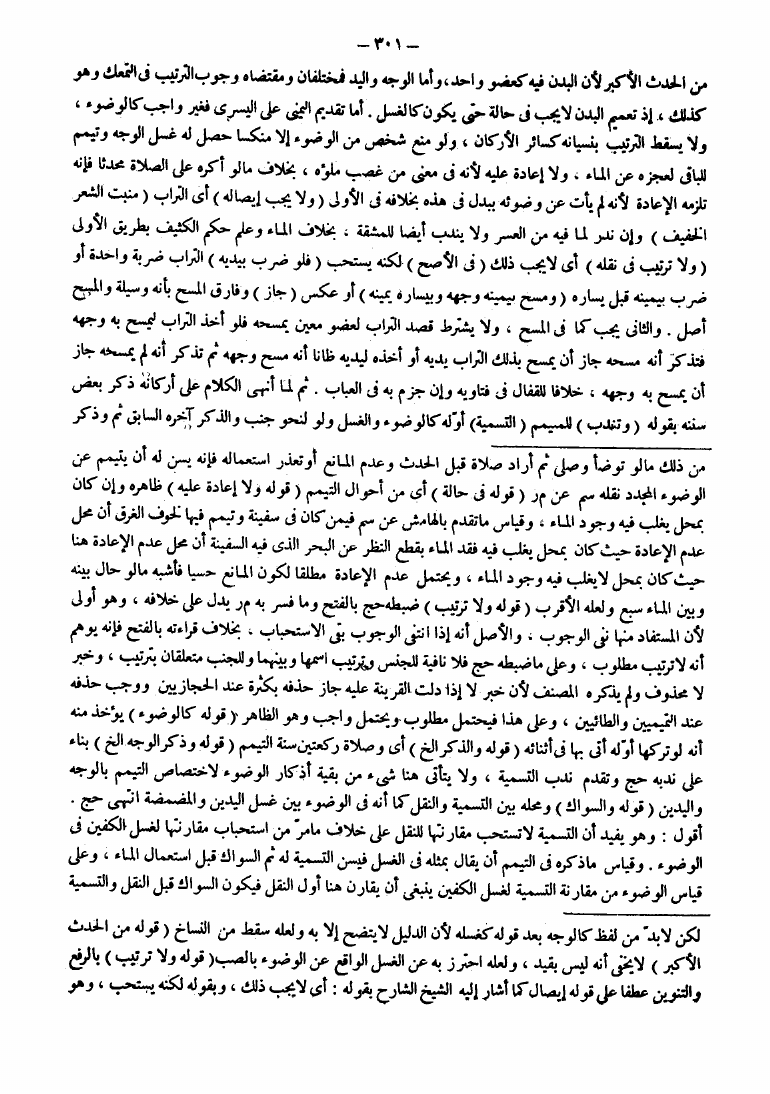 — ٣٠١ —
من الحدث الأكبر لأن البدن فيه كعضو واحد، وأما الوجه واليد فمختلفان ومقتضاه وجوب الترتيب فى التمعك وهو
كذلك ، إذ تعميم البدن لايجب فى حالة حتى يكون كالغسل . أما تقديم اليمنى على اليسرى فغير واجب كالوضوء ،
ولا يسقط الترتيب بنسيانه كسائر الأركان ، ولو منع شخص من الوضوء إلا منكسا حصل له غسل الوجه وتيمم
للباقى لعجزه عن الماء ، ولا إعادة عليه لأنه فى معنى من غصب ماؤه ، بخلاف مالو أكره على الصلاة محدثا فإنه
تلزمه الإعادة لأنه لم يأت عن وضوئه ببدل فى هذه بخلافه فى الأولى ( ولا يجب إيصاله ) أى التراب ( منبت الشعر
الخفيف ) وإن ندر لما فيه من العسر ولا يندب أيضا للمشقة ، بخلاف الماء وعلم حكم الكثيف بطريق الأولى
( ولا ترتيب فى نقله ) أى لايجب ذلك ( فى الأصح ) لكنه يستحب ( فلو ضرب بيديه ) التراب ضربة واحدة أو
ضرب بيمينه قبل يساره ( ومسح بيمينه وجهه وبيساره يمينه ) أو عكس ( جاز ) وفارق المسح بأنه وسيلة والمسح
أصل . والثانى يجب كما فى المسح ، ولا يشترط قصد التراب لعضو معين يمسحه فلو أخذ التراب ليمسح به وجهه
فتذكر أنه مسحه جاز أن يمسح بذلك التراب يديه أو أخذه ليديه ظانا أنه مسح وجهه ثم تذكر أنه لم يمسحه جاز
أن يمسح به وجهه ، خلافا للقفال فى فتاويه وإن جزم به فى العباب . ثم لما أنهى الكلام على أركانه ذكر بعض
سننه بقوله ( وتندب ) للميمم ( التسمية ) أوّله كالوضوء والغسل ولو لنحو جنب والذكر آخره السابق ثم وذكر
من ذلك مالو توضأ وصلى ثم أراد صلاة قبل الحدث وعدم المانع أو تعذر استعماله فإنه يسن له أن يتيمم عن
الوضوء المجدد نقله سم عن مر ( قوله فى حالة ) أى من أحوال التيمم ( قوله ولا إعادة عليه ) ظاهره وإن كان
بمحل يغلب فيه وجود الماء ، وقياس ماتقدم بالهامش عن سم فيمن كان فى سفينة وتيمم فيها لخوف الغرق أن محل
عدم الإعادة حيث كان بمحل يغلب فيه فقد الماء بقطع النظر عن البحر الذى فيه السفينة أن محل عدم الإعادة هنا
حيث كان بمحل لايغلب فيه وجود الماء ، ويحتمل عدم الإعادة مطلقا لكون المانع حسيا فأشبه مالو حال بينه
وبين الماء سبع ولعله الأقرب ( قوله ولا ترتيب ) ضبطه حج بالفتح وما فسر به مر يدل على خلافه ، وهو أولى
لأن المستفاد منها نفى الوجوب ، والأصل أنه إذا انتفى الوجوب بقى الاستحباب ، بخلاف قراءته بالفتح فإنه يوهم
أنه لاترتيب مطلوب ، وعلى ماضبطه حج فلا نافية للجنس وترتيب اسمها وبينهما وللجنب متعلقان بترتيب ، وخبر
لا محذوف ولم يذكره المصنف لأن خبر لا إذا دلت القرينة عليه جاز حذفه بكثرة عند الحجازيين ووجب حذفه
عند التميميين والطائيين ، وعلى هذا فيحتمل مطلوب ويحتمل واجب وهو الظاهر ( قوله كالوضوء ) يؤخذ منه
أنه لو تركها أوّله أتى بها فى أثنائه ( قوله والذكر الخ ) أى وصلاة ركعتين سنة التيمم ( قوله وذكر الوجه الخ ) بناء
على ندبه حج وتقدم ندب التسمية ، ولا يتأتى هنا شىء من بقية أذكار الوضوء لاختصاص التيمم بالوجه
واليدين ( قوله والسواك ) ومحله بين التسمية والنقل كما أنه فى الوضوء بين غسل اليدين والمضمضة انتهى حج .
أقول : وهو يفيد أن التسمية لاتستحب مقارنتها للنقل على خلاف مامرّ من استحباب مقارنتها لغسل الكفين فى
الوضوء . وقياس ماذكره فى التيمم أن يقال بمثله فى الغسل فيسن التسمية له ثم السواك قبل استعمال الماء ، وعلى
قياس الوضوء من مقارنة التسمية لغسل الكفين ينبغى أن يقارن هنا أول النقل فيكون السواك قبل النقل والتسمية
لكن لابدّ من لفظ كالوجه بعد قوله كغسله لأن الدليل لايتضح إلا به ولعله سقط من النساخ ( قوله من الحدث
الأكبر ) لايخفى أنه ليس بقيد ، ولعله احترز به عن الغسل الواقع عن الوضوء بالصب ( قوله ولا ترتيب ) بالرفع
والتنوين عطفا على قوله إيصال كما أشار إليه الشيخ الشارح بقوله : أى لايجب ذلك ، وبقوله لكنه يستحب ، وهو